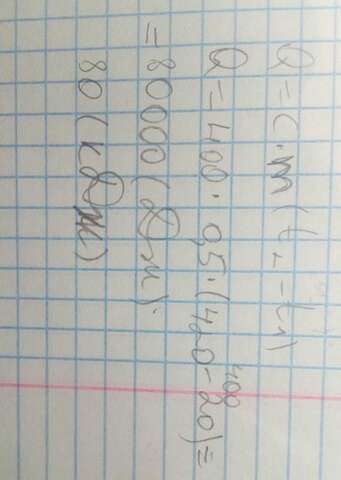 Q = c·m(t₂-t₁)
400
Q = 400·0,5·(420-20)=
= 80000 (Дж).
80 (кДж)